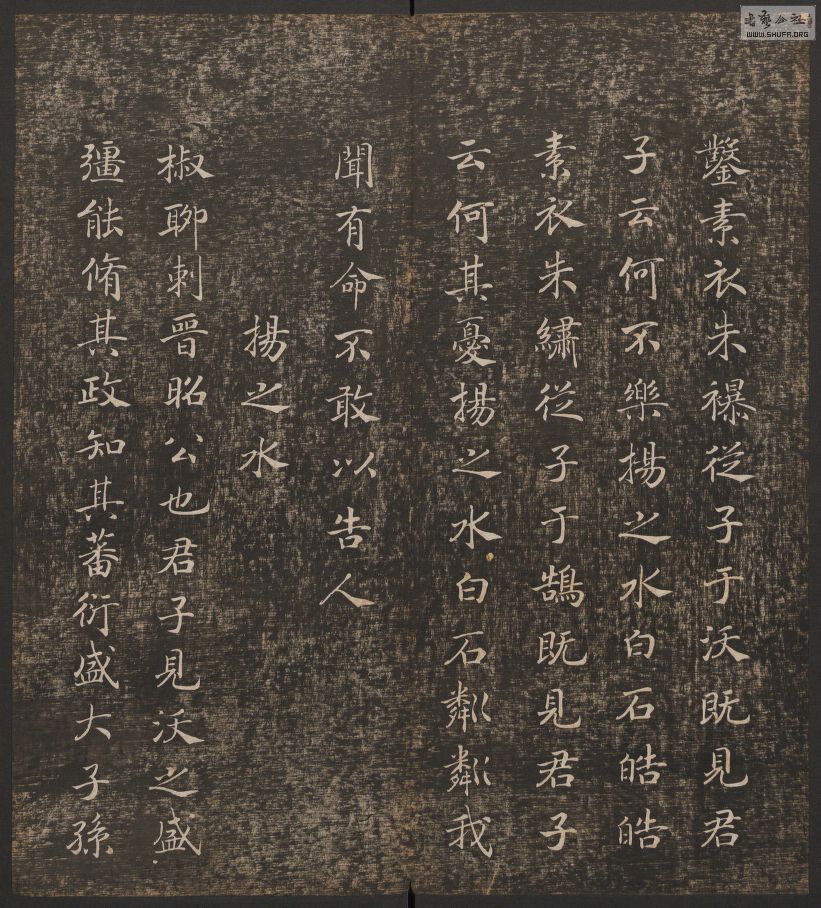 鑿素衣朱襮從子于沃既見君
子云何不樂揚之水白石皓皓
素衣朱繡從子于鵠既見君子
云何其憂揚之水白石粼粼我
聞有命不敢以告人
揚之水
椒聊刺晉昭公也君子見沃之盛
彊能脩其政知其蕃衍盛大子孫
WWW.SHUFA.ORG